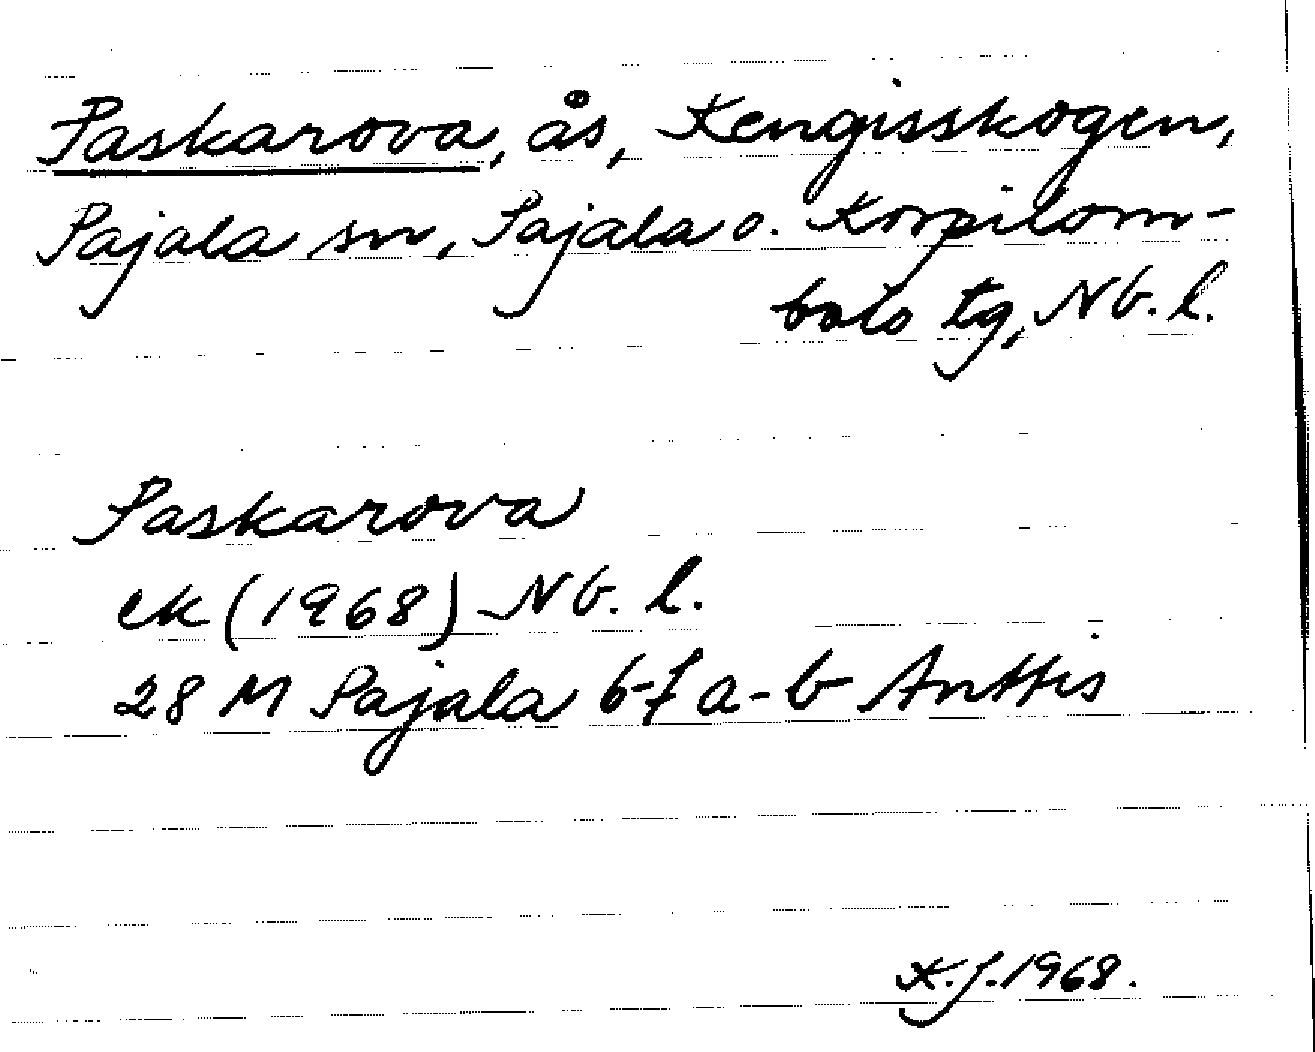 Paskarova, ås, Kengisskogen,
Pajala sn, Pajala o. Korpilom-
bolo tg, Nb. l.
Paskarova
ek (1968) Nb. l.
28 M Pajala 6-7 a-b Anttis
K.J. 1968.